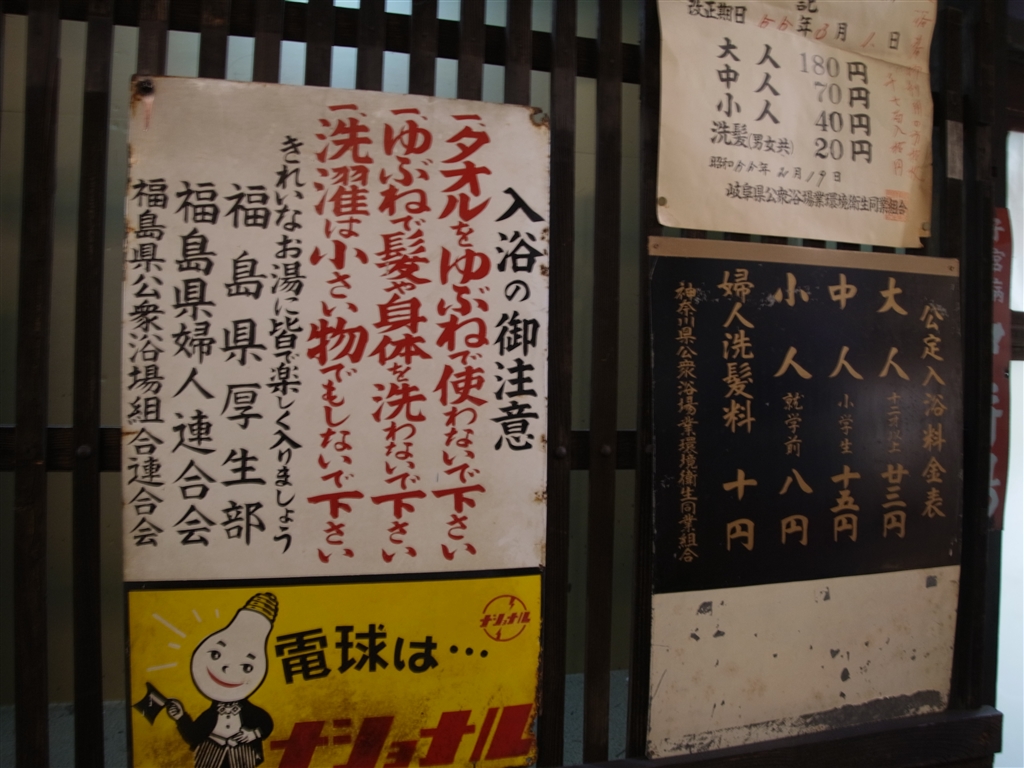 入浴の御注意
一、タオルをゆぶねで使わないで下さい
一、ゆぶねで髪や身体を洗わないで下さい
一、洗濯は小さい物でもしないで下さい
きれいなお湯に皆で楽しく入りましょう
福島県厚生部
福島県婦人連合会
福島県公衆浴場組合連合会
電球は…
ナショナル
ナショナル
記
改正期日 年 月 1日
大人 180円
中人 70円
小人 40円
洗髪(男女共) 20円
昭和 年 月19日
岐阜県公衆浴場業環境衛生同業組合
公定入浴料金表
大人 十二才以上 廿三円
中人 小学生 十五円
小人 就学前 八円
婦人洗髪料 十円
神奈川県公衆浴場業環境衛生同業組合